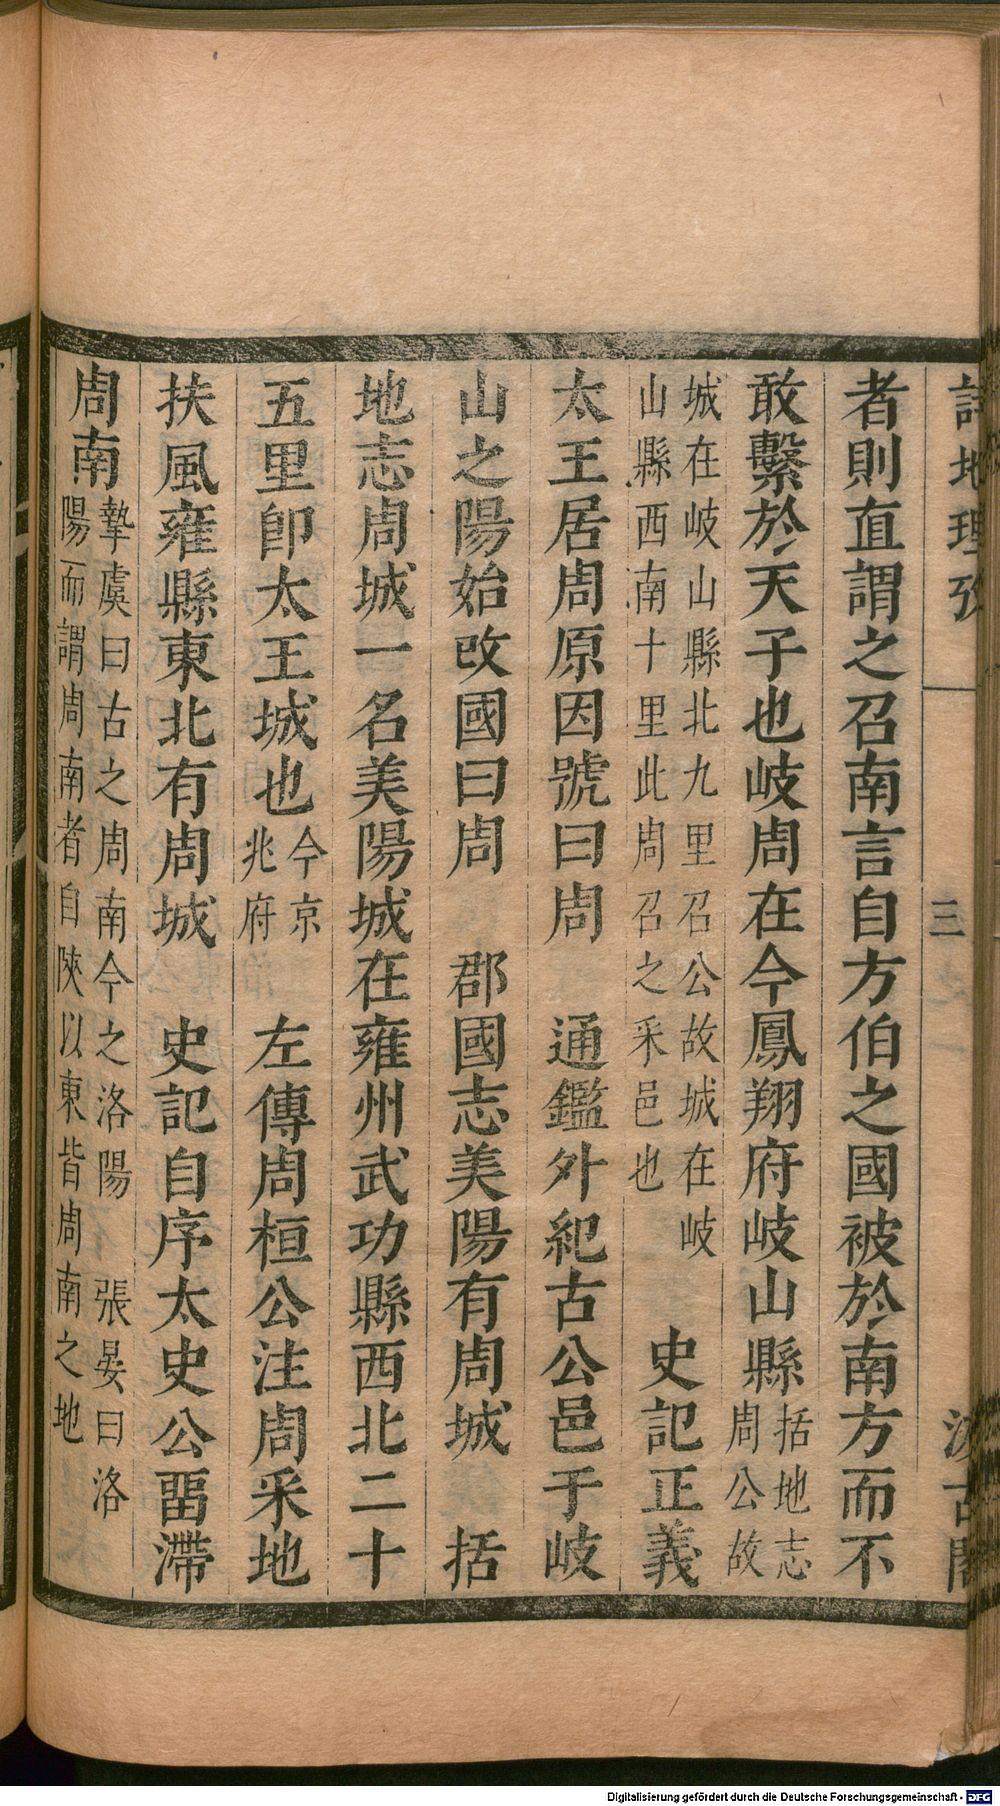 詩地理攷
三
汲古閣
者則直謂之召南言自方伯之國被於南方而不
敢繫於天子也岐周在今鳳翔府岐山縣括地志周公故
城在岐山縣北九里召公故城在岐
山縣西南十里此周召之采邑也 史記正義
太王居周原因號曰周 通鑑外紀古公邑于岐
山之陽始改國曰周 郡國志美陽有周城 括
地志周城一名美陽城在雍州武功縣西北二十
五里卽太王城也今京兆府 左傳周桓公注周采地
扶風雍縣東北有周城 史記自序太史公畱滯
周南摯虞曰古之周南今之洛陽 張晏曰洛
陽而謂周南者自陝以東皆周南之地
Digitalisierung gefördert durch die Deutsche Forschungsgemeinschaft - DFG